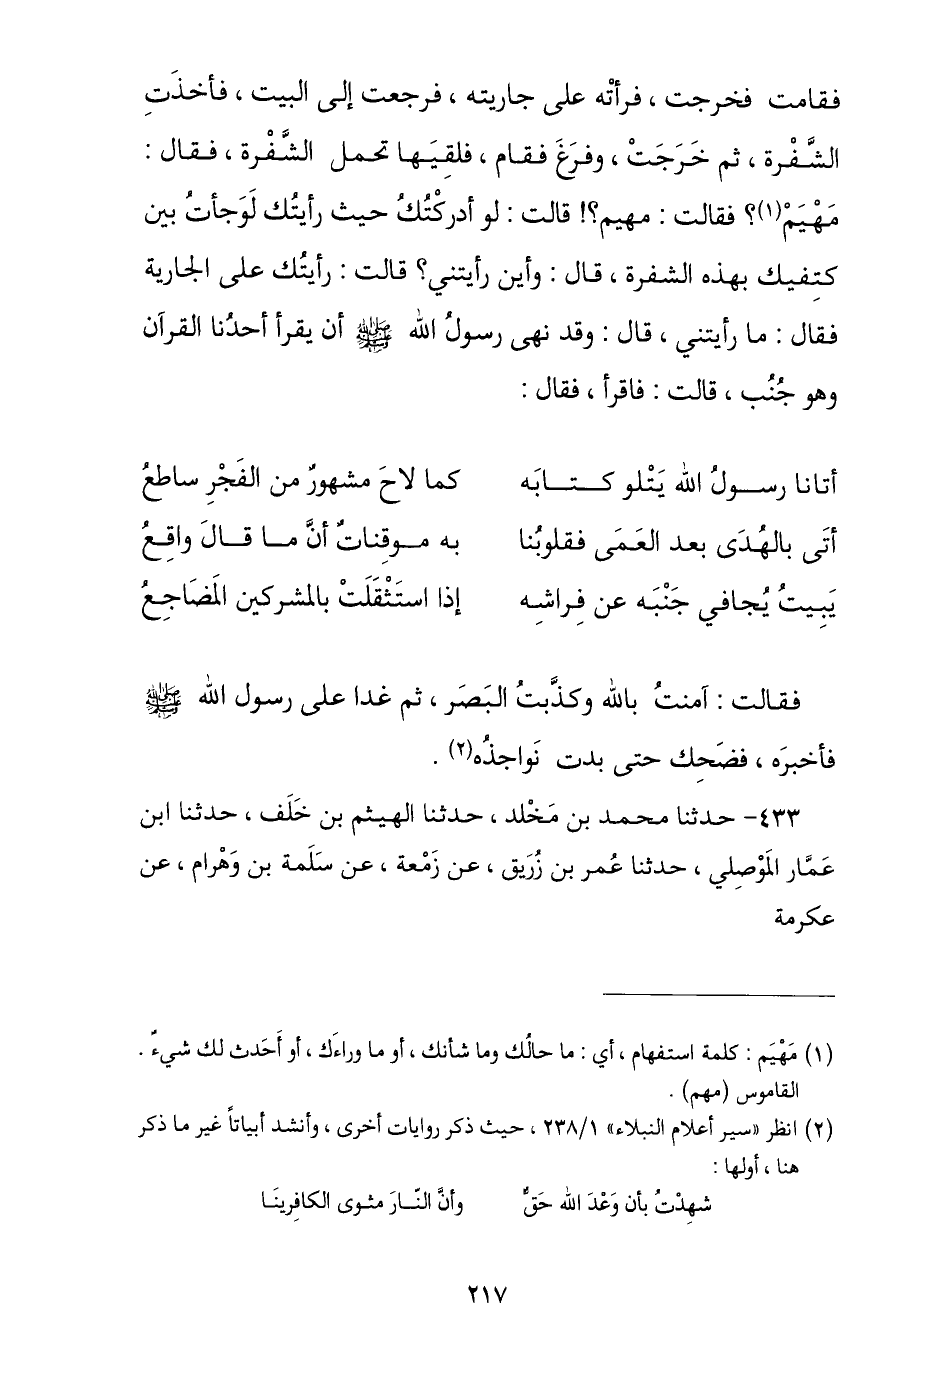 فقامت فخرجت ، فرأتْه على جاريته ، فرجعت إلى البيت ، فأخذَتِ
الشَّفْرة ، ثم خَرَجَتْ ، وفرَغَ فقام ، فلقِيَها تحمل الشَّفْرة ، فقال :
مَهْيَمْ(١)؟ فقالت : مهيم؟! قالت : لو أدركْتُكُ حيث رأيتُك لَوَجأتُ بين
كتِفيك بهذه الشفرة ، قال : وأين رأيتني؟ قالت : رأيتُك على الجارية
فقال : ما رأيتني ، قال : وقد نهى رسولُ الله ﷺ أن يقرأ أحدُنا القرآن
وهو جُنُب ، قالت : فاقرأ ، فقال :
أتانا رسولُ الله يَتْلو كتابَه كما لاحَ مشهورٌ من الفَجْرِ ساطعُ
أتَى بالهُدَى بعد العَمَى فقلوبُنا به موقناتٌ أنَّ ما قالَ واقِعُ
يَبِيتُ يُجافي جَنْبَه عن فِراشِه إذا استَثْقَلَتْ بالمشركين المَضَاجِعُ
فقالت : آمنتُ بالله وكذَّبتُ البَصَر ، ثم غدا على رسول الله ﷺ
فأخبرَه ، فضَحِك حتى بدت نَواجذُه(٢) .
٤٣٣- حدثنا محمد بن مَخْلد ، حدثنا الهيثم بن خَلَف ، حدثنا ابن
عَمَّار المَوْصِلي ، حدثنا عُمر بن زُرَيق ، عن زَمْعة ، عن سَلَمة بن وَهْرام ، عن
عكرمة
(١) مَهْيَم : كلمة استفهام ، أي : ما حالُك وما شأنك ، أو ما وراءَك ، أو أَحَدث لك شيءٌ .
القاموس (مهم) .
(٢) انظر «سير أعلام النبلاء» ٢٣٨/١ ، حيث ذكر روايات أخرى ، وأنشد أبياتاً غير ما ذكر
هنا ، أولها :
شهِدْتُ بأن وَعْدَ الله حَقٌّ وأنَّ النّارَ مثوى الكافِرينَا
٢١٧